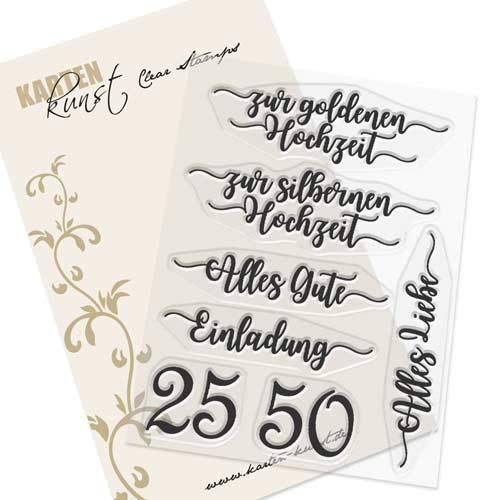 KARTEN
kunst
Clear Stamps
zur goldenen
Hochzeit
zur silbernen
Hochzeit
Alles Gute
Einladung
Alles Liebe
25 50
www.karten-kunst.de